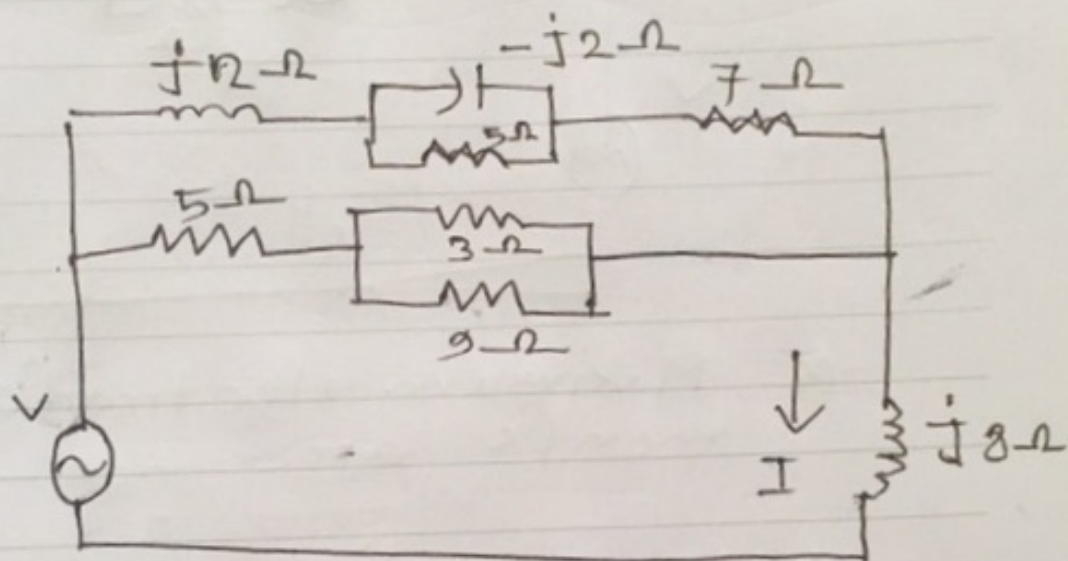 j12Ω
-j2Ω
7Ω
5Ω
5Ω
3Ω
9Ω
V
I
j8Ω